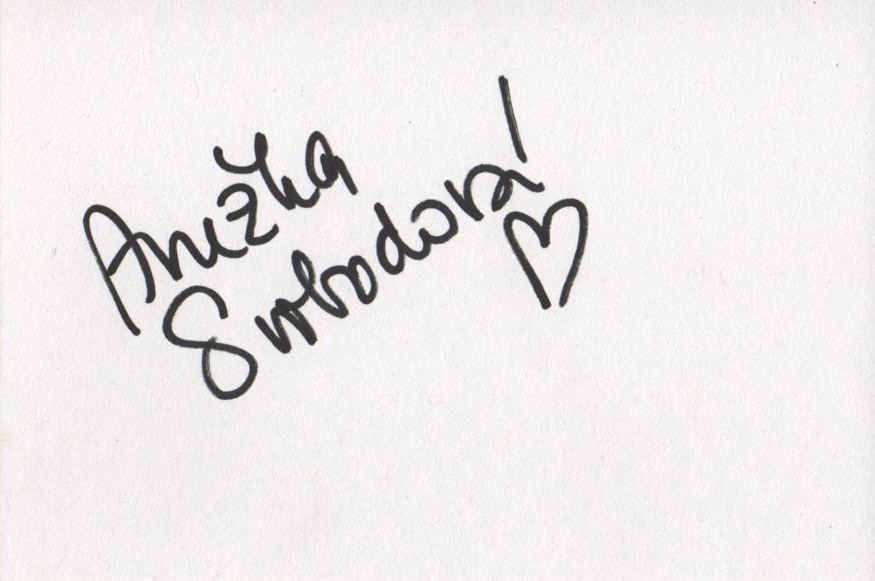 Anežka
Svobodová